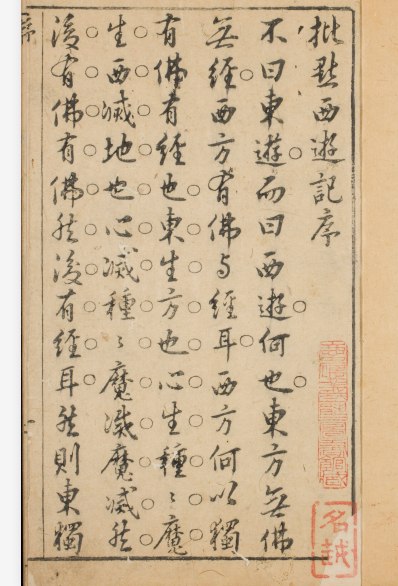 批點西遊記序
不曰東遊而曰西遊何也東方無佛
無經西方有佛与經耳西方何以獨
有佛有經也東生方也心生種〻魔
生西滅地也心滅種〻魔滅魔滅然
後有佛有佛然後有經耳然則東獨
名越